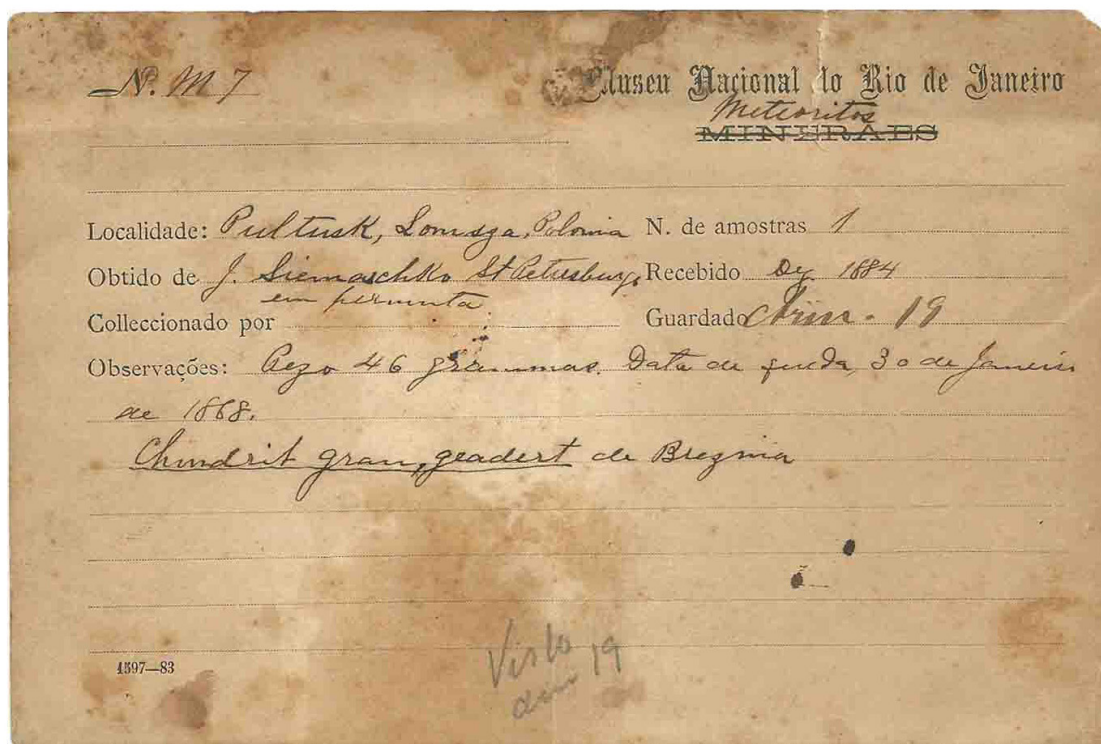 Nº. M 7
Museu Nacional do Rio de Janeiro
Meteoritos
MINERAES
Localidade: Pultusk, Lomsza, Polonia N. de amostras 1
Obtido de J. Siemaschko St Petersburg, Recebido Dez 1884
em permuta
Colleccionado por Guardado Arm. 19
Observações: Pezo 46 grammas. Data de queda, 30 de Janeiro
de 1868.
Chondrit grau, geadert de Brezina
Visto
arm 19
1597—83